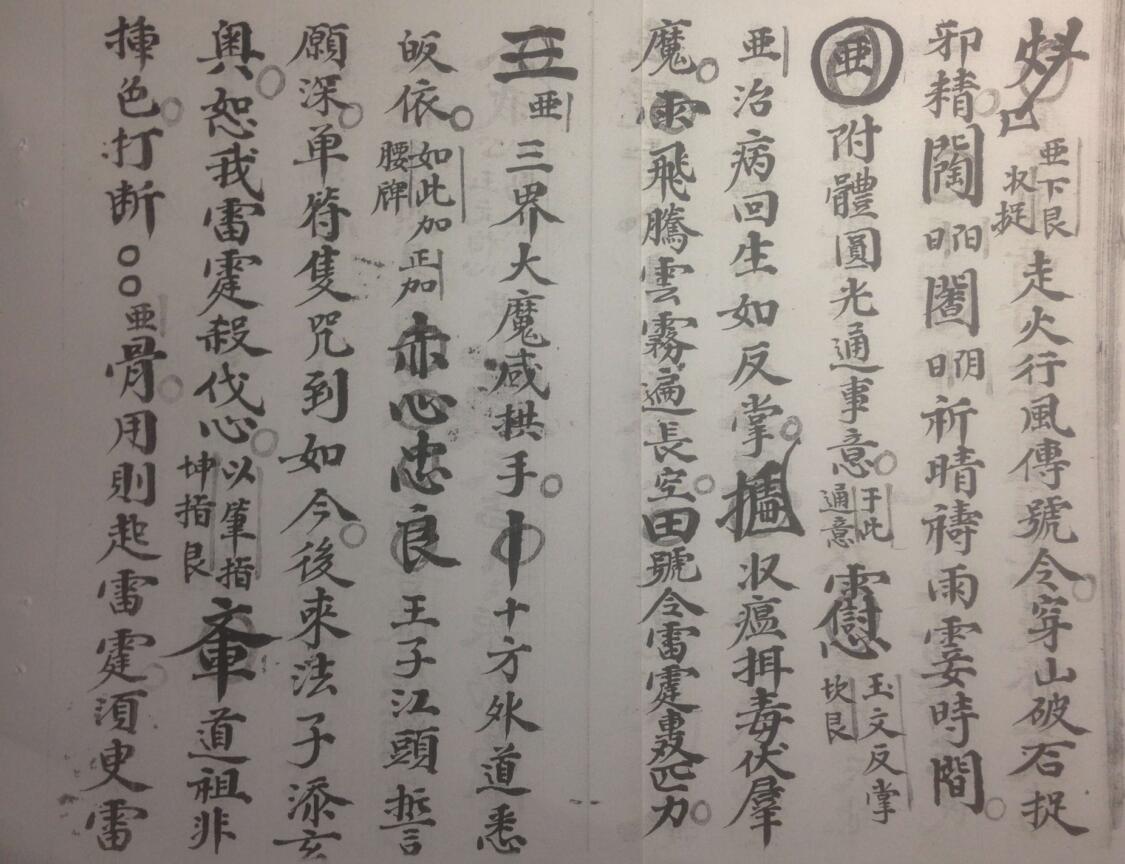 亜下艮収捉走火行風傳號令穿山破石捉
邪精祈晴禱雨霎時間
亜附體圓光通事意于此通意玉文反掌坎艮
亜治病回生如反掌収瘟拑毒伏群
魔飛騰雲霧遍長空田號令雷霆效匹力
亜三界大魔咸拱手十方外道悉
皈依如此加腰牌正加赤心忠良王子江頭誓
願深单符隻咒到如今後來法子添玄
奥恕我雷霆殺伐心以筆指坤指艮道祖非
揀色打断〇〇亜骨用則起雷霆須臾雷